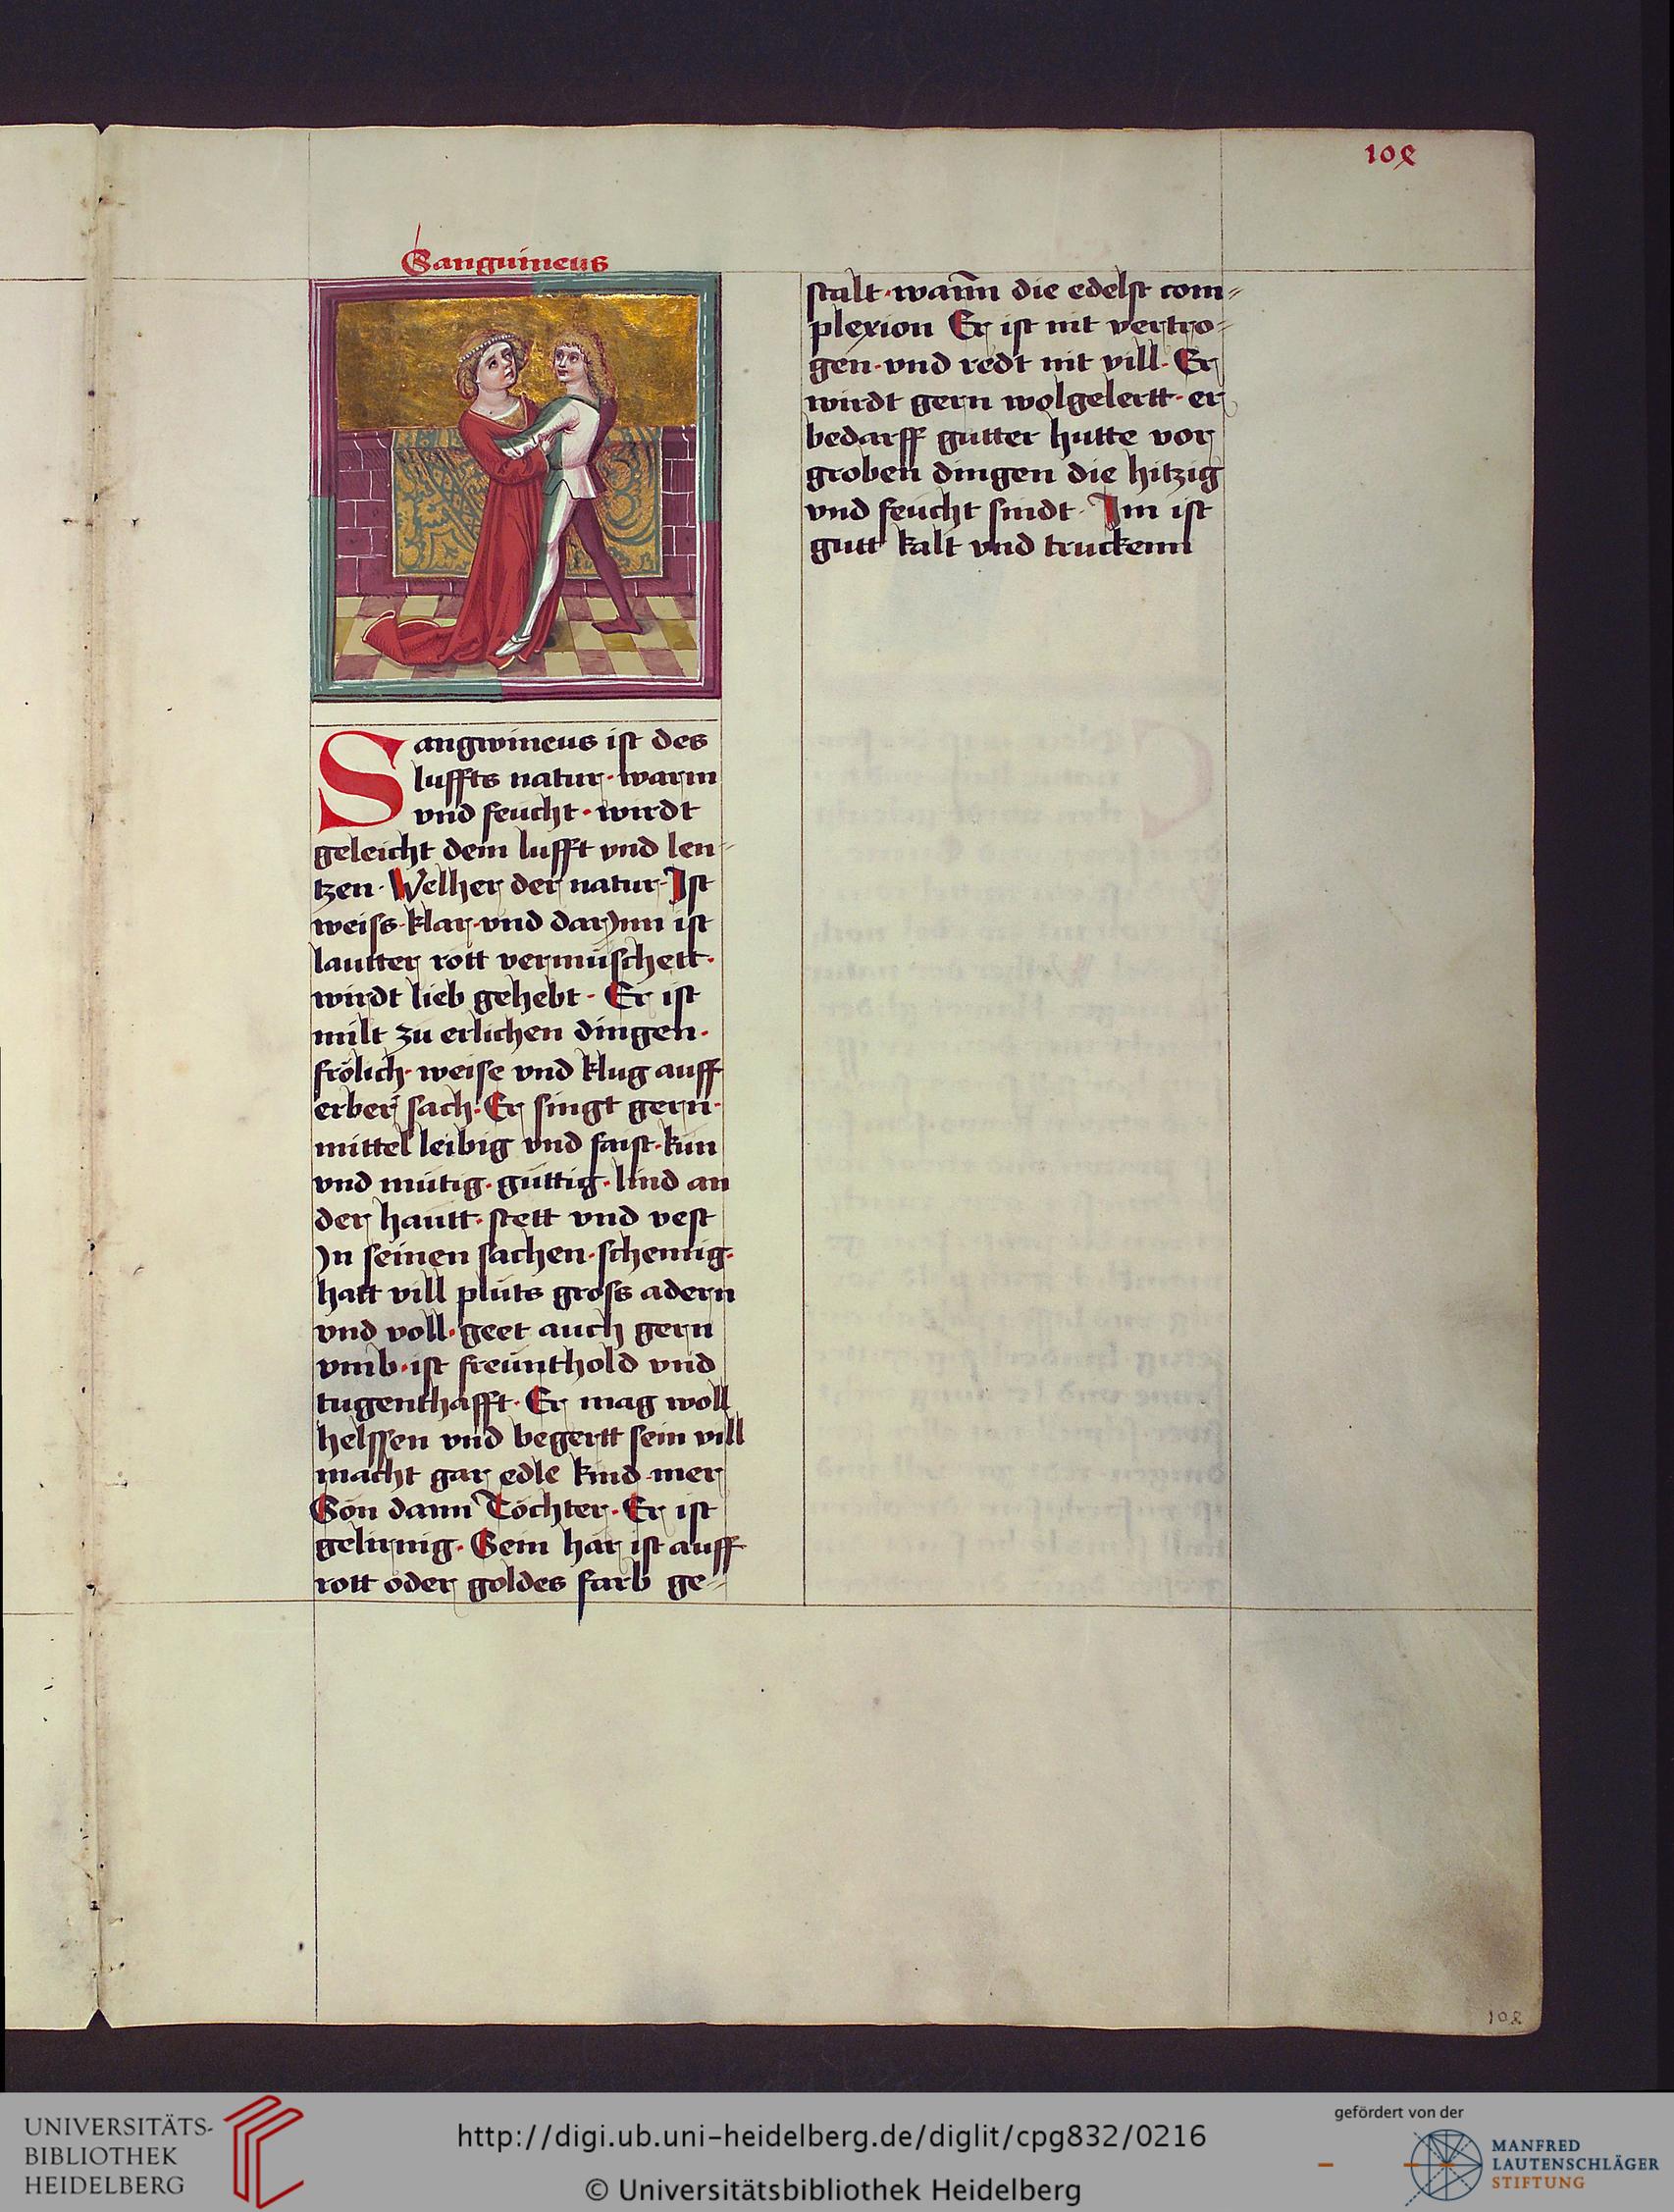 108
Sanguineus
Sangwineus ist des
luffts natur · warm
vnd feücht · wirdt
geleicht dem lufft vnd len⸗
tzen · Welher der natur · Ist
weiss · klar · vnd darynn ist
lautter rott vermüschett ·
wirdt lieb gehebt · Er ist
milt zu erlichen dingen ·
frölich · weise vnd klug auff
erber sach · Er singt gern ·
mittel leibig vnd faist · kün
vnd mütig · güttig · lind an
der hautt · stett vnd vest
Jn seinen sachen · schemig ·
hatt vill plüts gross adern
vnd voll · geet auch gern
vmb · ist freünthold vnd
tugenthafft · Er mag woll
helssen vnd begertt sein vill
macht gar edle kind · mer
Sön dann Töchter · Er ist
gelirnig · Sein har ist auff
rott oder goldes farb ge⸗
stalt · wann̄ die edelst com⸗
plexion Er ist nit vertro⸗
gen · vnd redt nit vill · Er
wirdt gern wolgelertt · er
bedarff gutter hutte vor
groben dingen die hitzig
vnd feücht sindt · Im ist
gutt kalt vnd truckenn
108
UNIVERSITÄTS-
BIBLIOTHEK
HEIDELBERG
http://digi.ub.uni-heidelberg.de/diglit/cpg832/0216
© Universitätsbibliothek Heidelberg
gefördert von der
MANFRED
LAUTENSCHLÄGER
STIFTUNG